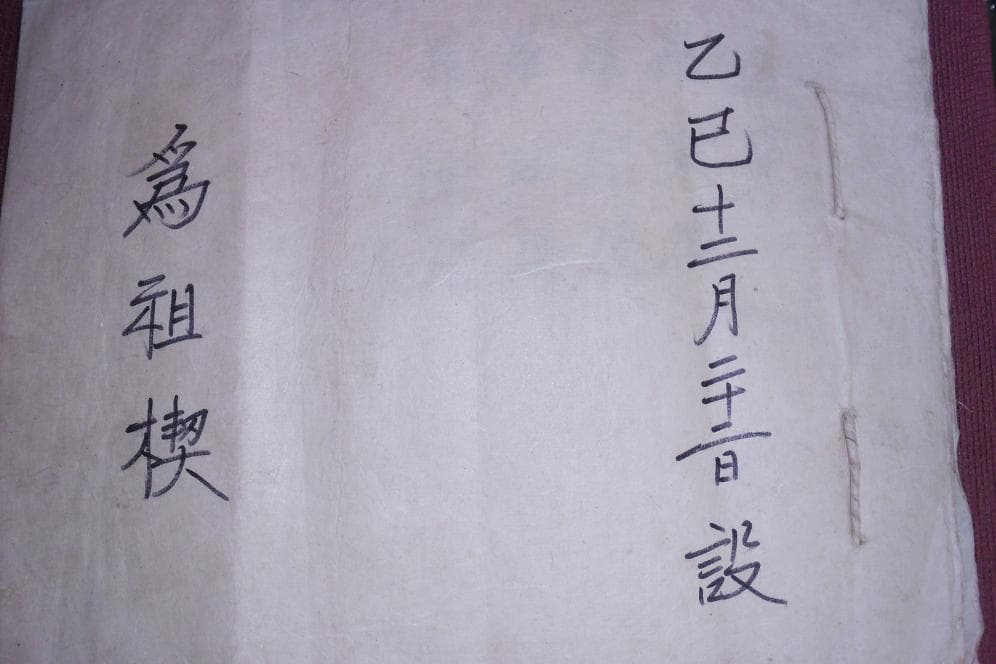 乙巳十二月二十二日設
爲祖楔